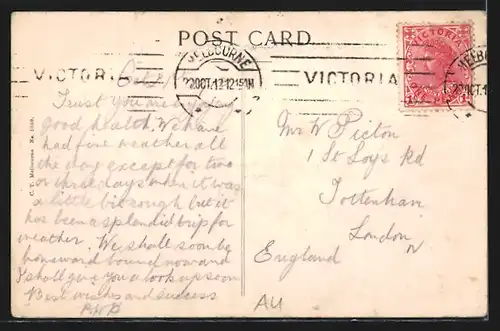 POST CARD
MELBOURNE
22 OCT. 12 12 15
VICTORIA
VICTORIA
VICTORIA
ONE PENNY
22 OCT.
Oct 21
Trust you are enjoying
good health. We have
had fine weather all
the way except for two
or three days when it was
a little bit rough but it
has been a splendid trip for
weather. We shall soon be
homeward bound now and
I shall give you a look up soon
Best wishes and success
Mr W Picton
1 St Loys Rd
Tottenham
London
N
England
AU